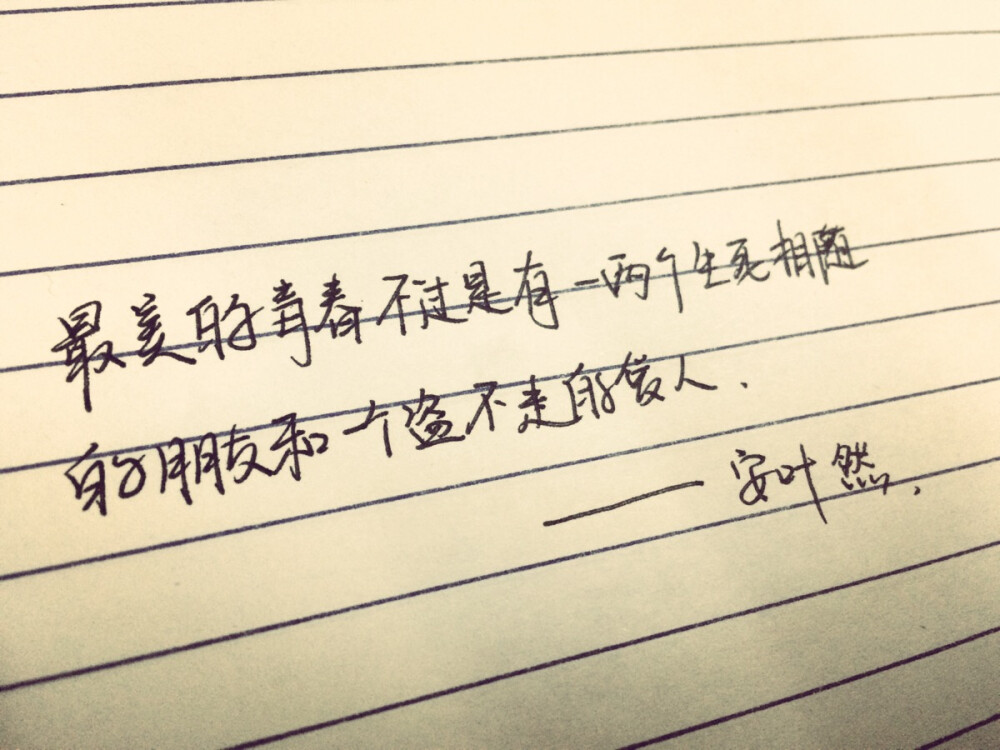 最美的青春不过是有一两个生死相随
的朋友和一个盗不走的爱人.
——安叶然.